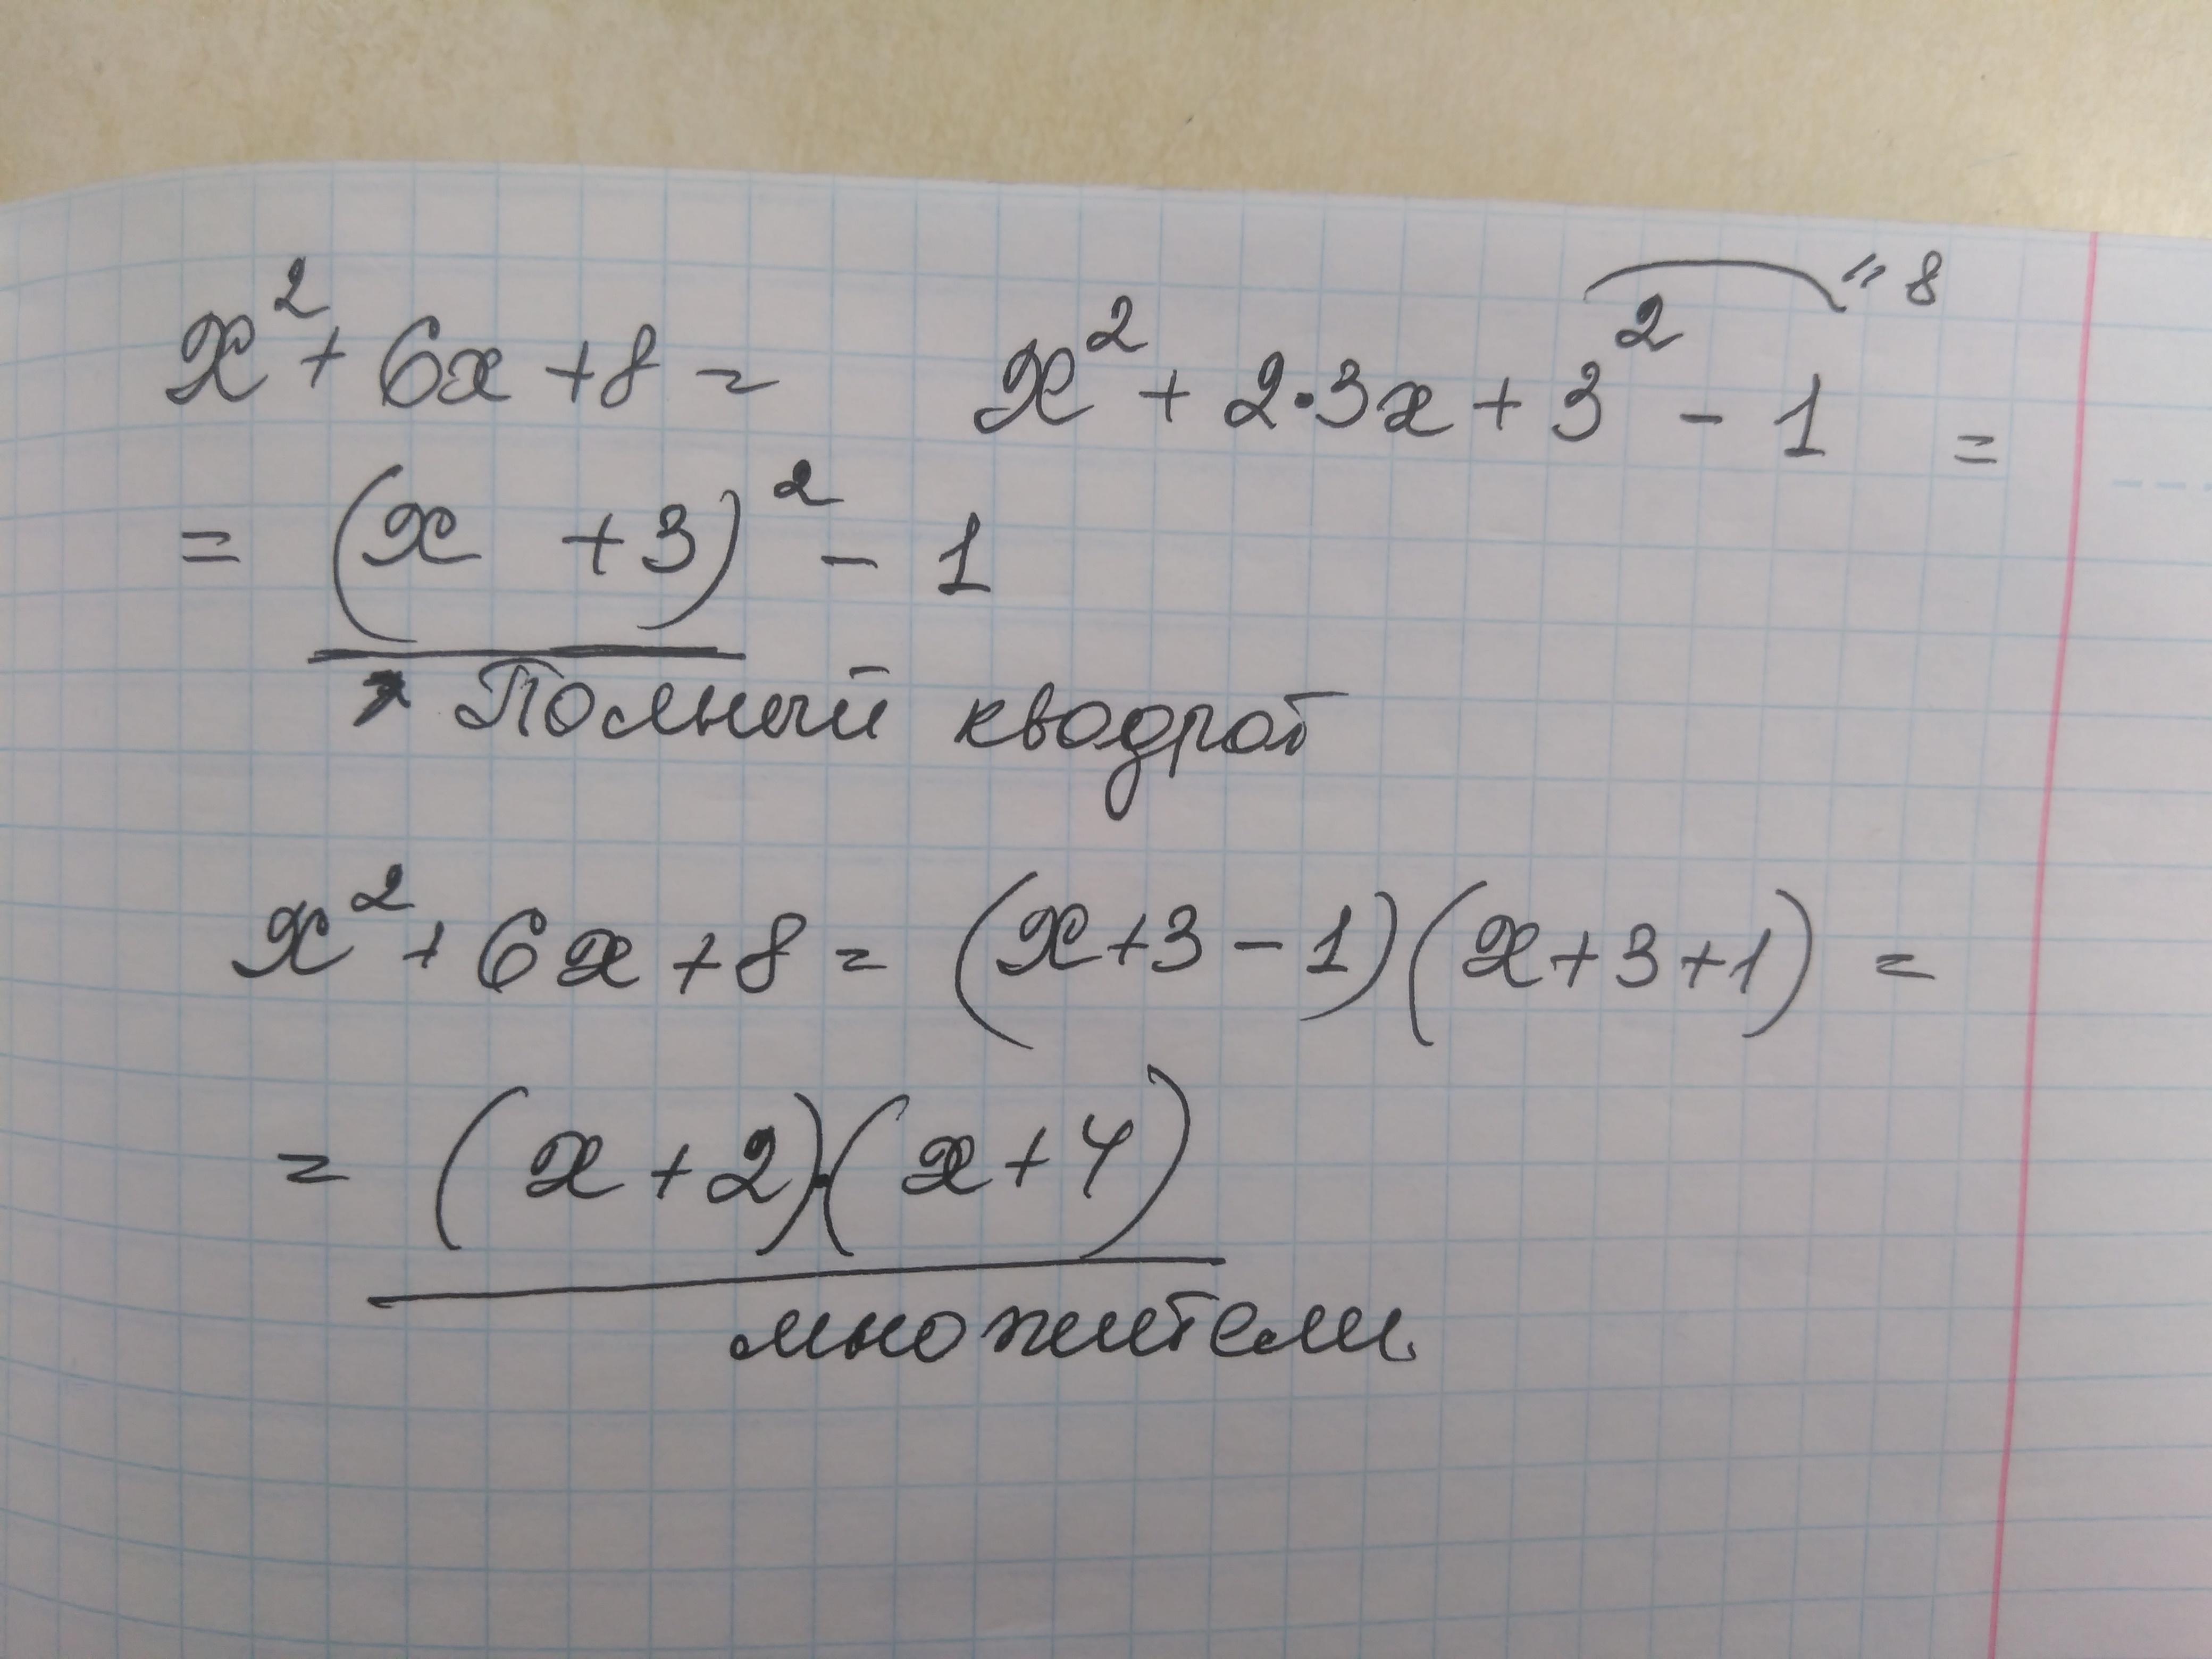 x² + 6x + 8 = x² + 2·3x + 3² - 1 =
" 8
= (x + 3)² - 1
Полный квадрат
x² + 6x + 8 = (x + 3 - 1)(x + 3 + 1) =
= (x + 2)·(x + 4)
множители